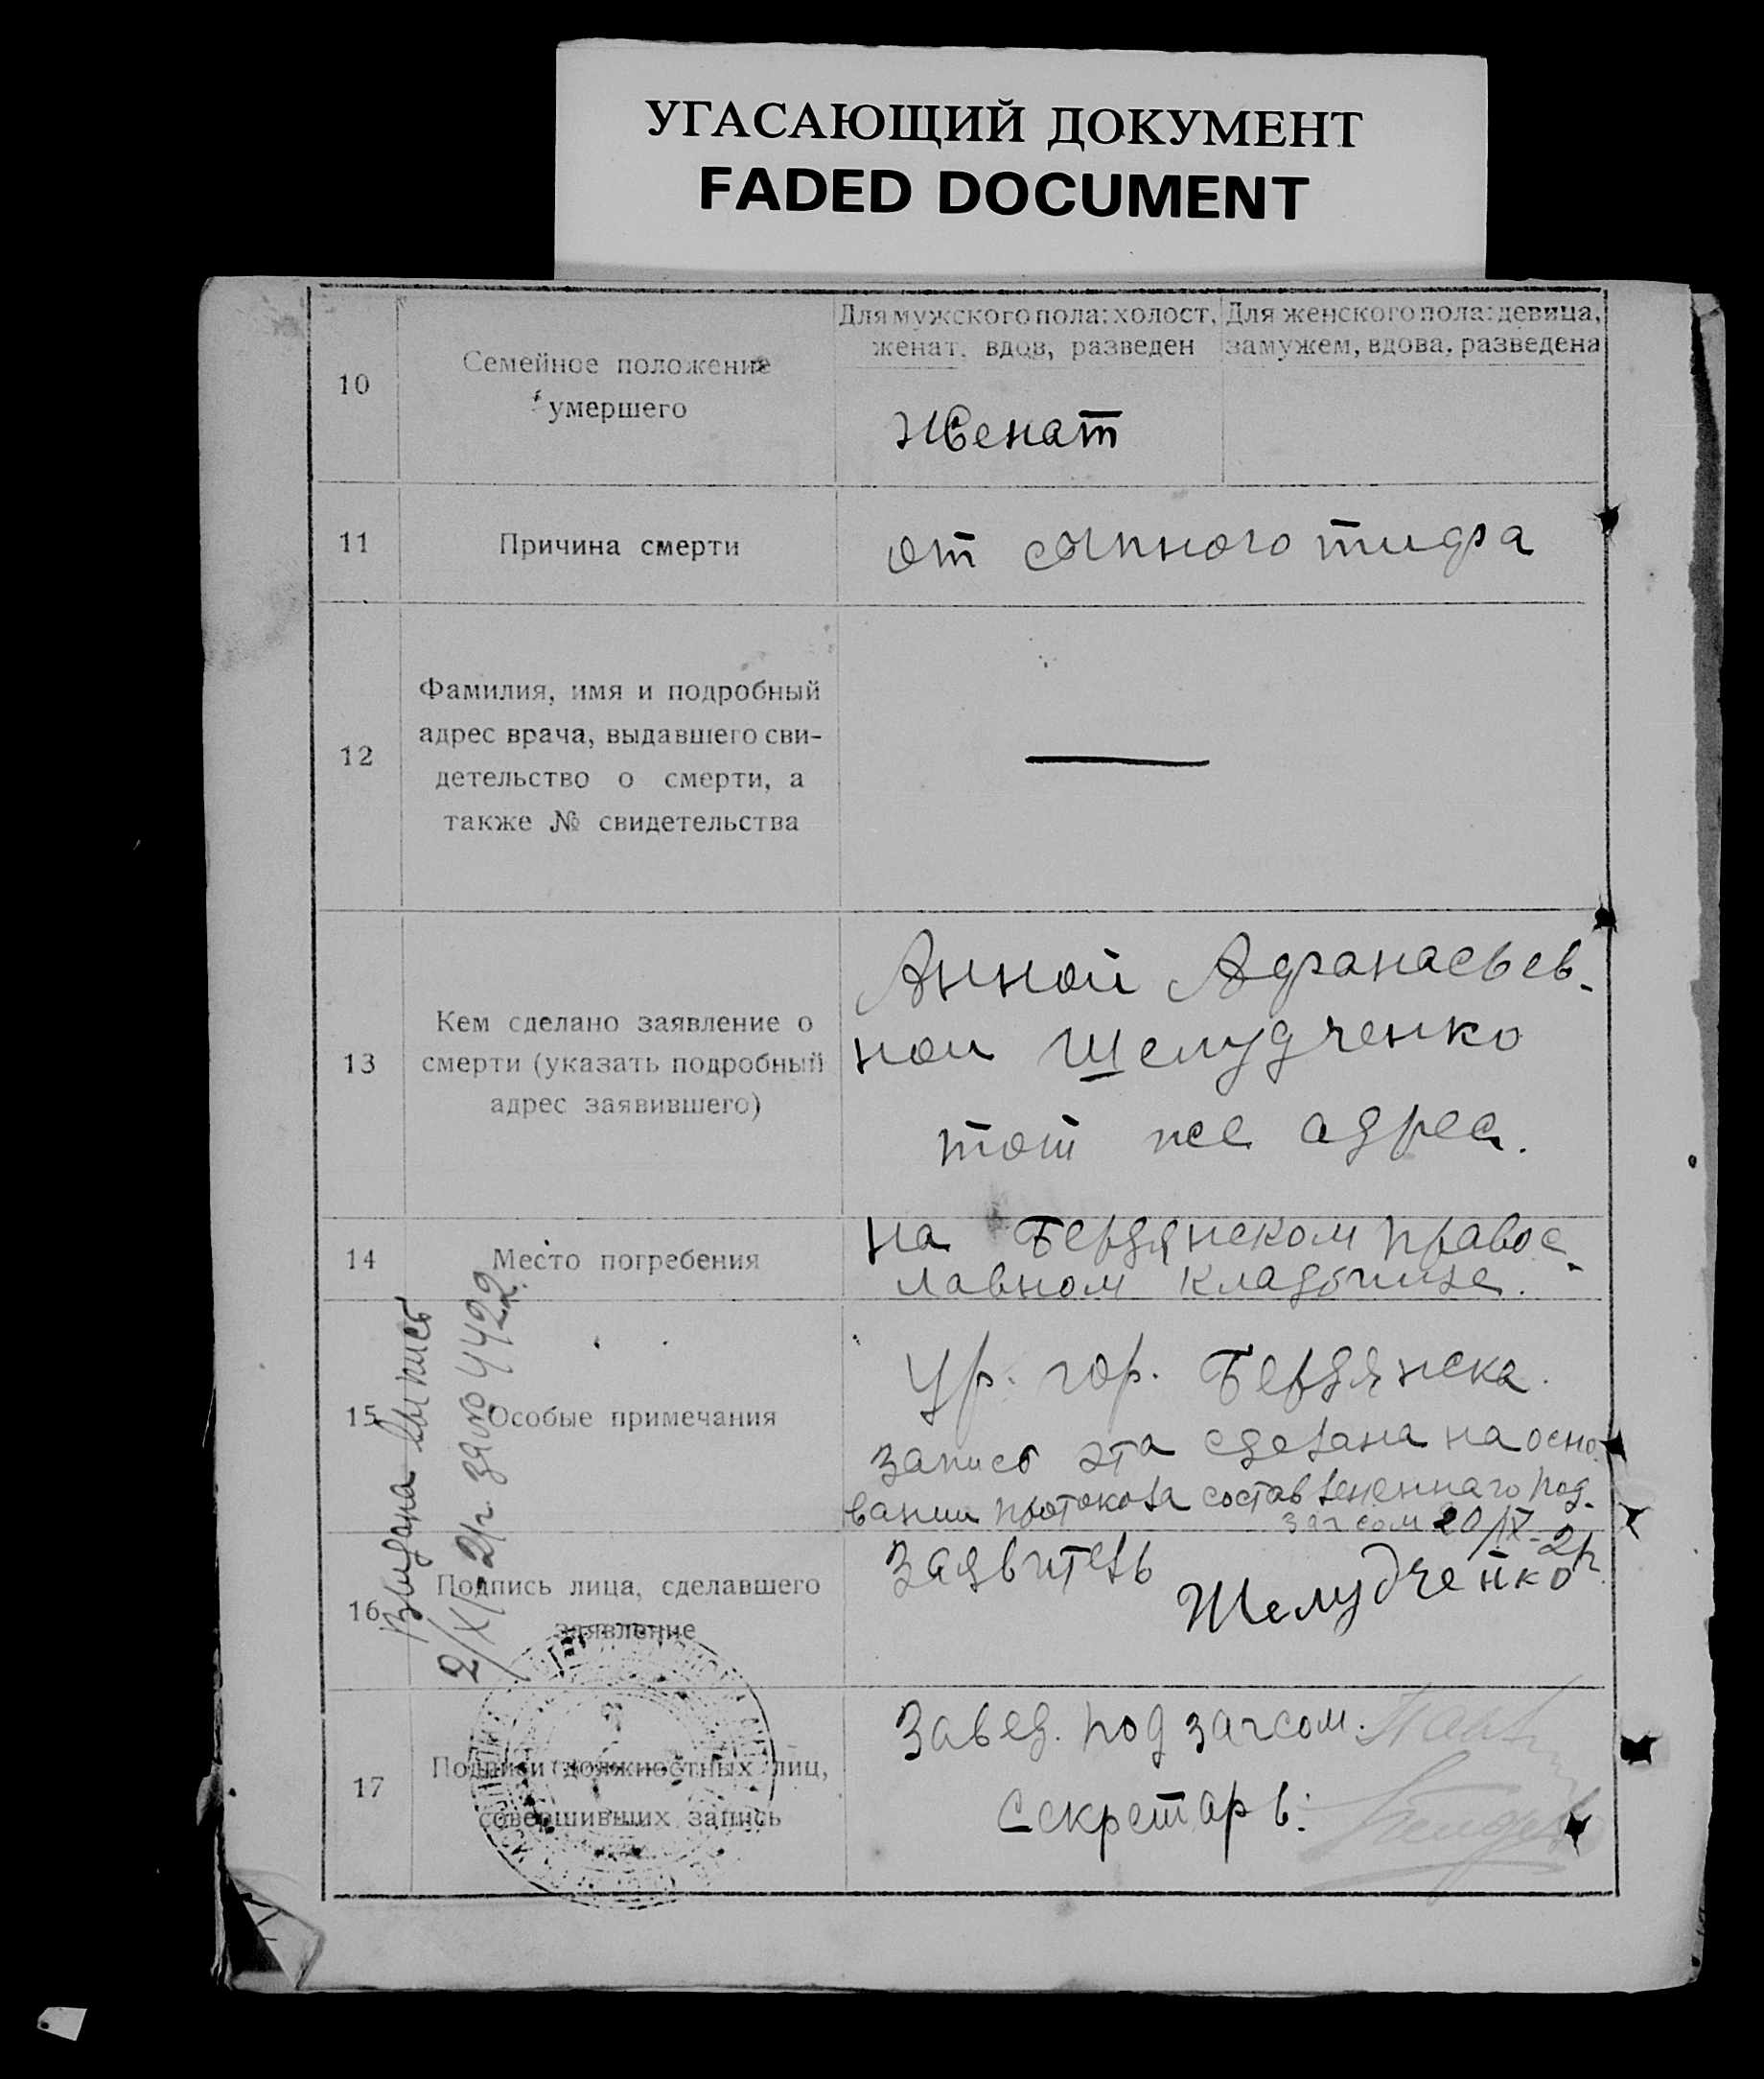 УГАСАЮЩИЙ ДОКУМЕНТ
FADED DOCUMENT
10
Семейное положение
умершего
Для мужского пола: холост,
женат, вдов, разведен
Для женского пола: девица,
замужем, вдова, разведена
Женат
11
Причина смерти
от сыпного тифа
12
Фамилия, имя и подробный
адрес врача, выдавшего сви-
детельство о смерти, а
также № свидетельства
13
Кем сделано заявление о
смерти (указать подробный
адрес заявившего)
Анной Афанасьев-
ной Шелудченко
тот же адрес.
14
Место погребения
на Бердянском правос-
лавном кладбище.
15
Особые примечания
Ур. гор. Бердянска.
запись эта сделана на осно
вании протокола составленного под.
загсом 20/IX-21г.
16
Подпись лица, сделавшего
заявление
Заявитель
Шелудченко
17
Подписи должностных лиц,
совершивших запись
Завед. подзагсом.
Секретарь:
Выдана выпись
2/XI-21г. за № 4422.